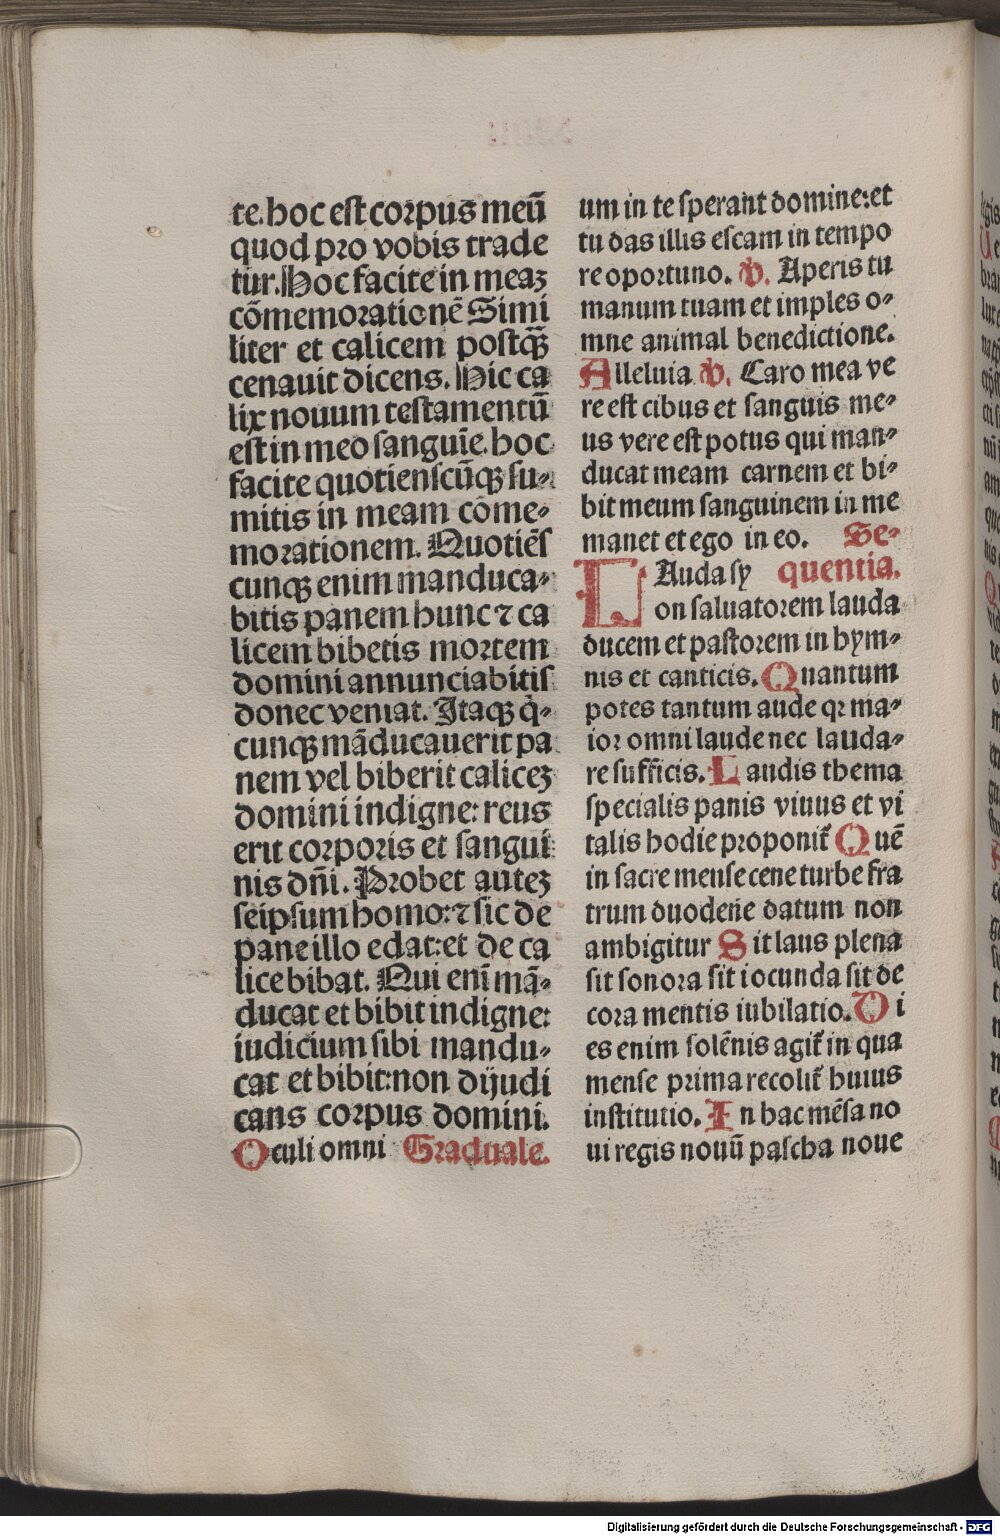 te. hoc est corpus meū
quod pro vobis trade
tur. Hoc facite in meaꝫ
cōmemorationē Simi
liter et calicem postqᷓꝫ
cenauit dicens. Hic ca
lix nouum testamentū
est in meo sanguīe. hoc
facite quotienscūqꝫ su-
mitis in meam cōme-
morationem. Quotiēs
cunqꝫ enim manduca-
bitis panem hunc ⁊ ca
licem bibetis mortem
domini annunciabitis
donec veniat. Itaqꝫ q̇-
cunqꝫ māducauerit pa
nem vel biberit caliceꝫ
domini indigne: reus
erit corporis et sangui
nis dn̄i. Probet auteꝫ
seipsum homo: ⁊ sic de
pane illo edat: et de ca
lice bibat. Qui enī mā-
ducat et bibit indigne:
iudicium sibi mandu-
cat et bibit: non dijudi
cans corpus domini.
Oculi omni Graduale.
um in te sperant domine: et
tu das illis escam in tempo
re oportuno. V. Aperis tu
manum tuam et imples o-
mne animal benedictione.
Alleluia V. Caro mea ve
re est cibus et sanguis me-
us vere est potus qui man-
ducat meam carnem et bi-
bit meum sanguinem in me
manet et ego in eo. Se-
LAuda sy quentia.
on saluatorem lauda
ducem et pastorem in hym-
nis et canticis. Quantum
potes tantum aude qꝛ ma-
ior omni laude nec lauda-
re sufficis. Laudis thema
specialis panis viuus et vi
talis hodie proponit᷑ Quē
in sacre mense cene turbe fra
trum duodene datum non
ambigitur Sit laus plena
sit sonora sit iocunda sit de
cora mentis iubilatio. Di
es enim solēnis agit᷑ in qua
mense prima recolit᷑ huius
institutio. In hac mēsa no
ui regis nouū pascha noue
Digitalisierung gefördert durch die Deutsche Forschungsgemeinschaft - DFG